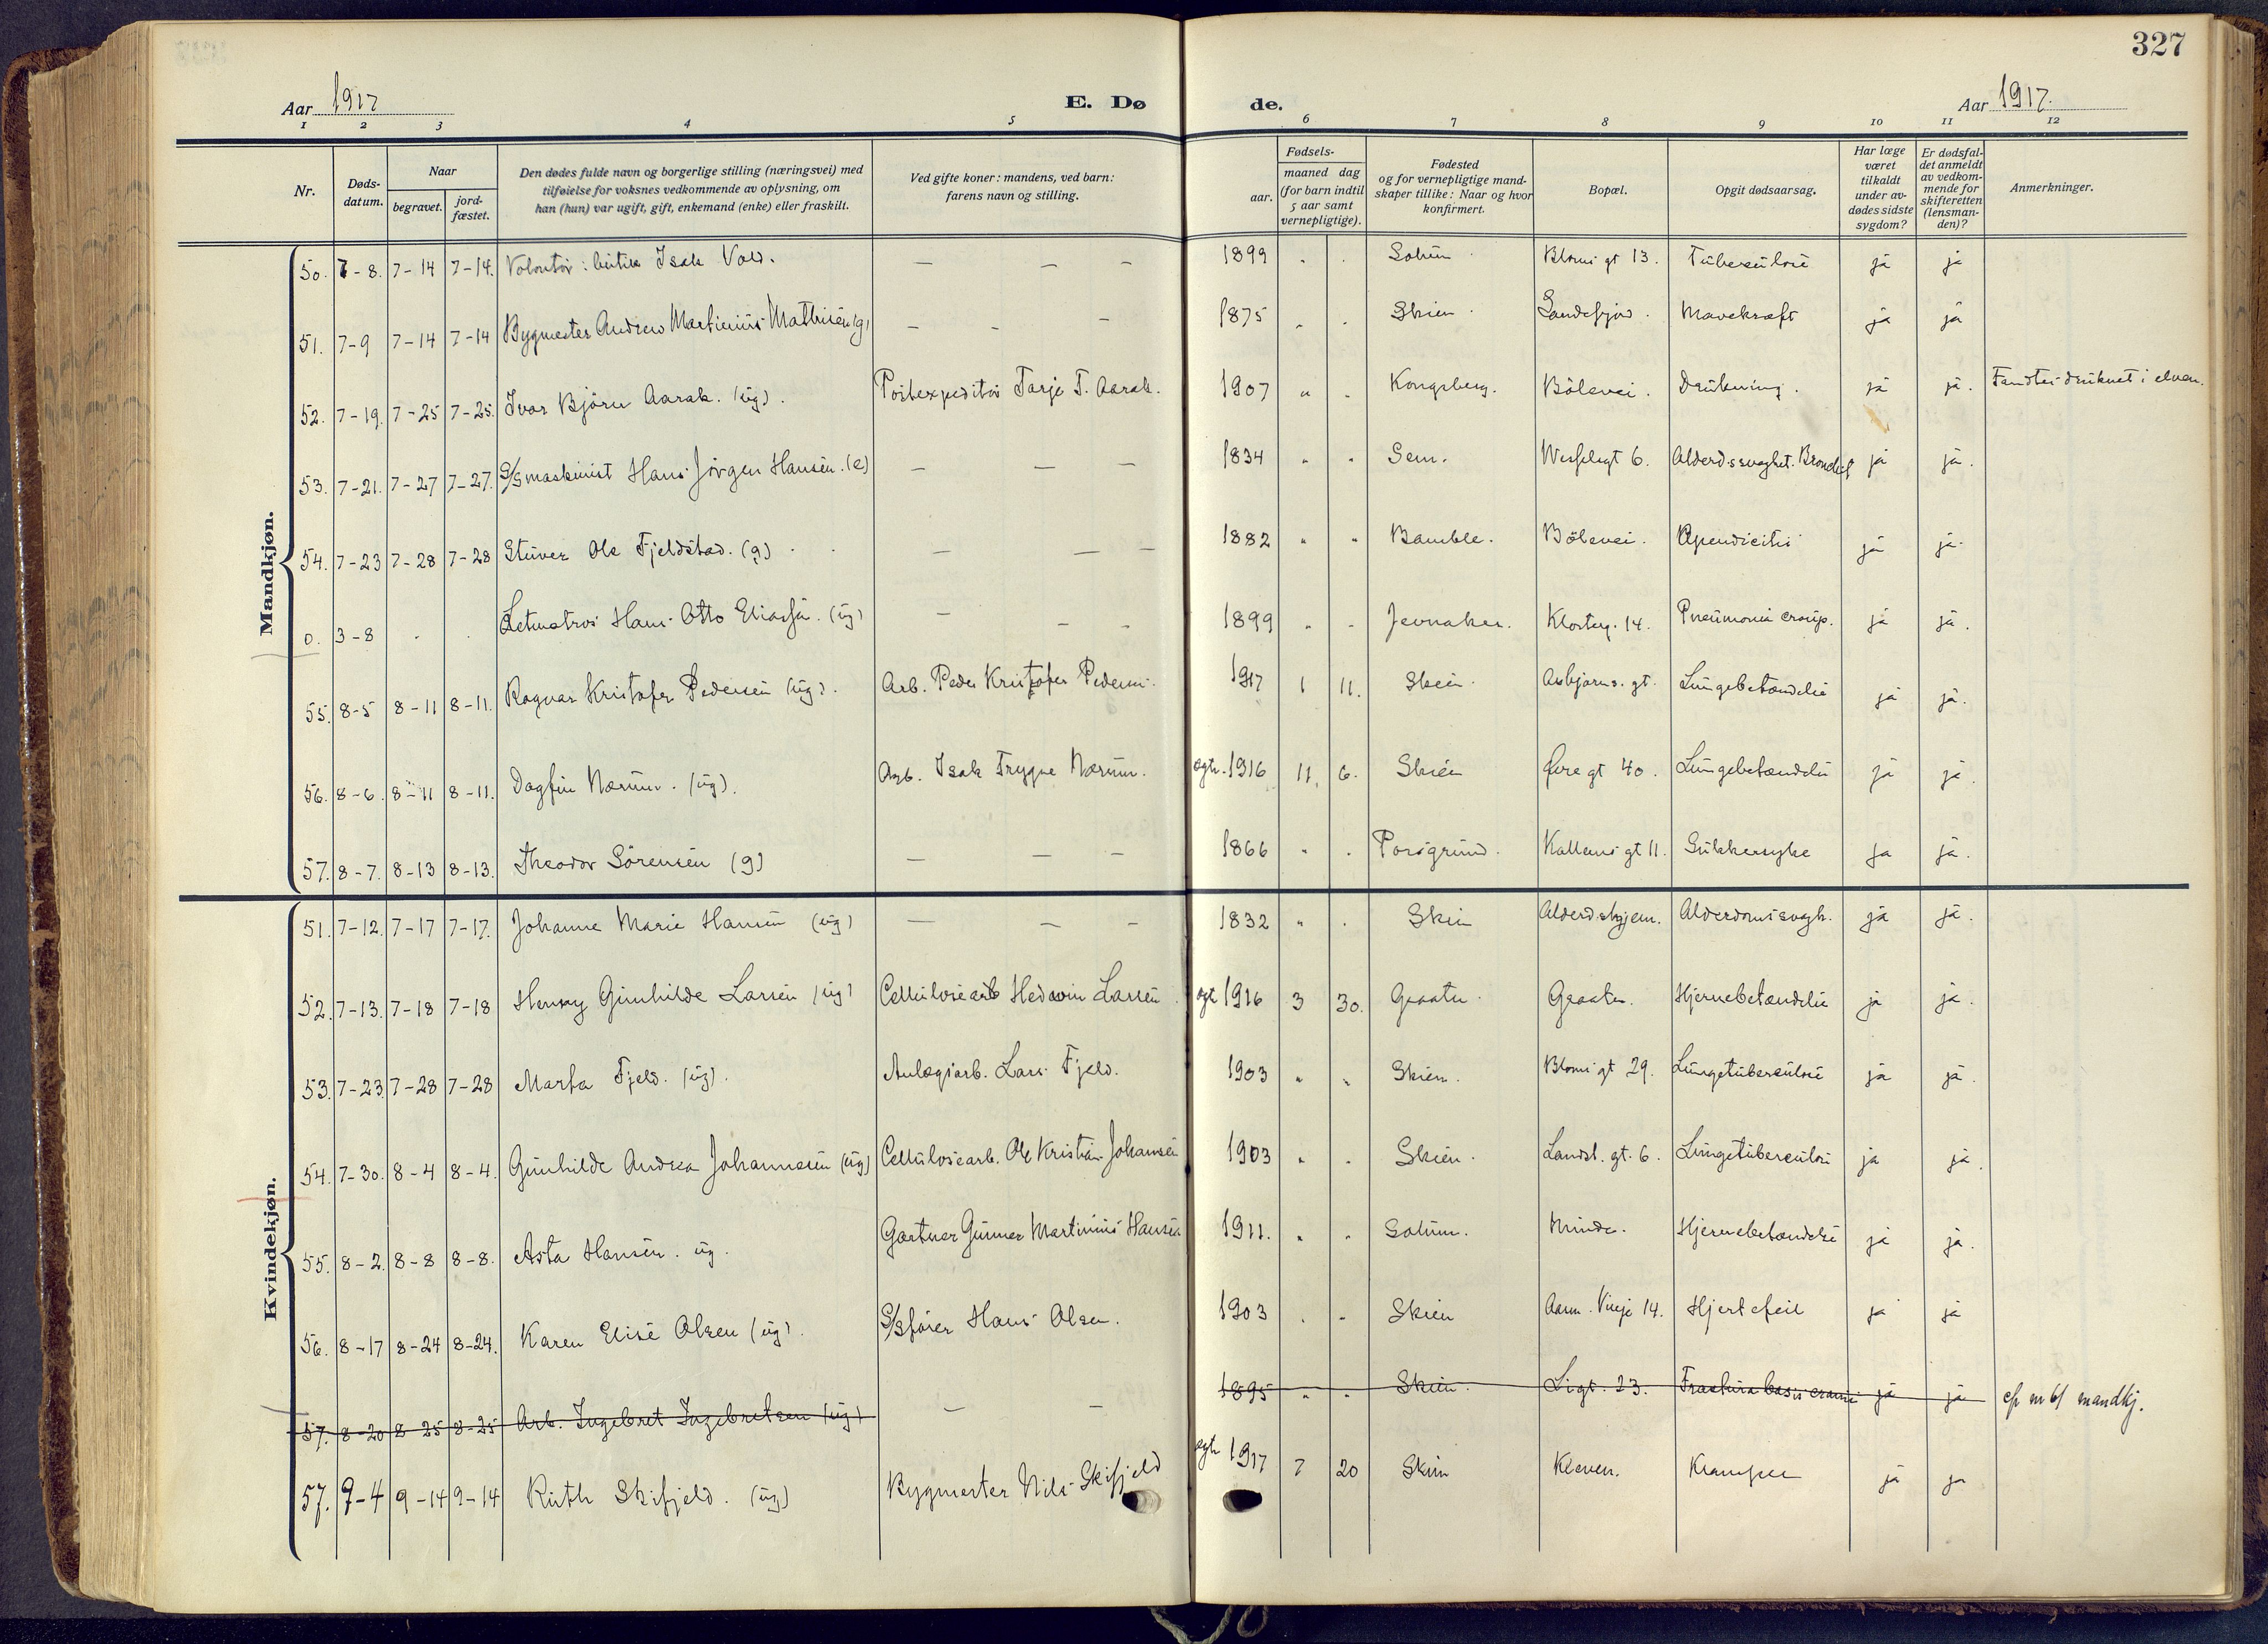 327
Aar 1917
E. Dø de.
Aar 1917.
1 2 3 4 5 6 7 8 9 10 11 12
Nr. | Døds-datum. | Naar begravet. | jord-fæstet. | Den dødes fulde navn og borgerlige stilling (næringsvei) med tilføielse for voksnes vedkommende av oplysning, om han (hun) var ugift, gift, enkemand (enke) eller fraskilt. | Ved gifte koner: mandens, ved barn: farens navn og stilling. | Fødsels- aar. | maaned dag (for barn indtil 5 aar samt vernepligtige). | Fødested og for vernepligtige mand-skaper tillike: Naar og hvor konfirmert. | Bopæl. | Opgit dødsaarsag. | Har læge været tilkaldt under av-dødes sidste sygdom? | Er dødsfal-det anmeldt av vedkom-mende for skifteretten (lensman-den)? | Anmerkninger.
Mandkjøn.
50. 7-8. 7-14 7-14. Isak Vold. — — — 1899 " " Solum. Bloms gt 13. Tuberculose ja ja
51. 7-9 7-14 7-14 Bygmester Andrew Martinius Mathisen (g) — — — 1875 " " Skien. Sandefjord. Mavekræft ja ja
52. 7-19. 7-25 7-25. Ivar Bjørn Aarak. (ug). Postexpeditør Tarje T. Aarak. 1907 " " Kongsberg. Bölevei. Drukning. ja ja. Fandtes druknet i elven.
53. 7-21. 7-27 7-27. S/S maskinist Hans Jörgen Hansen. (e) — — — 1834 " " Sem. Wesselsgt 6. Alderd.svaghet. ja ja.
54. 7-23 7-28 7-28 Stuver Ole Fjeldstad. (g) — — — 1882 " " Bamble. Bölevei. Apendicitis ja ja.
0. 3-8 . . Letmatros Hans Otto Eliassen. (ug) — — — 1899 " " Jevnaker. Klosterg. 14. Pneumonia croup. ja ja.
55. 8-5 8-11 8-11. Ragnar Kristofer Pedersen (ug). Arb. Peder Kristofer Pedersen. 1917 1 11. Skien. Asbjørns. gt. Lungebetændelse ja ja.
56. 8-6. 8-11 8-11. Dagfin Nærum. (ug). Arb. Isak Trygve Nærum. ægte. 1916 11. 6. Skien Øvregt 40. Lungebetændelse ja ja.
57. 8-7. 8-13 8-13. Theodor Sörensen (g) — — — 1866 " " Porsgrund. Kallems gt 11. Sukkersyke ja ja.
Kvindekjøn.
51. 7-12. 7-17 7-17. Johanne Marie Hansen (ug) — — — 1832 " " Skien Alderd.shjem. Alderdomssvagh. ja ja.
52. 7-13. 7-18 7-18 Henny Gunhilde Larsen (ug) Cellulosearb Larsen ægt 1916 3 30. Graaten. Graaten. Hjernebetændelse ja ja.
53. 7-23. 7-28 7-28 Marta Fjeld. (ug). Anlægsarb. Lars Fjeld. 1903 " " Skien. Bloms gt 29. Lungetuberculose ja ja.
54. 7-30. 8-4 8-4. Gunhilde Andrea Johannesen (ug) Cellulosearb. Ole Kristian Johansen 1903 " " Skien. Landst. gt. 6. Lungetuberculose ja ja.
55. 8-2. 8-8 8-8. Asta Hansen. ug. Gartner Gunner Martinius Hansen 1911. " " Solum. Minde. Hjernebetændelse ja ja.
56. 8-17 8-24 8-24. Karen Elise Olsen (ug). S/S fører Hans Olsen. 1903 " " Skien Aasm. Vinje 14. Hjertefeil ja ja
57. 8-20 8-25 8-25 Arb. Ingebret Ingebretsen (ug) — — 1895 " " Skien. Ligt. 23. Fractura basis cranii ja ja mandkj.
57. 9-4 9-14 9-14 Ruth Skifjeld. (ug) Bygmester Nils Skifjeld ægte 1917 7 20 Skien Kleven. Kramper ja ja